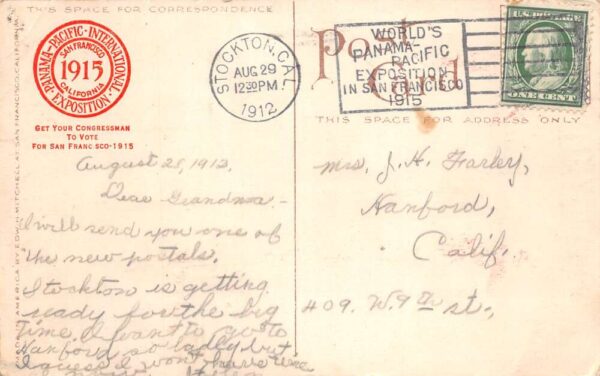 THIS SPACE FOR CORRESPONDENCE
PANAMA-PACIFIC-INTERNATIONAL
EXPOSITION
SAN FRANCISCO
1915
CALIFORNIA
GET YOUR CONGRESSMAN
TO VOTE
FOR SAN FRANCISCO-1915
STOCKTON, CAL.
AUG 29
12 30 PM
1912
Post
Card
WORLD'S
PANAMA-
PACIFIC
EXPOSITION
IN SAN FRANCISCO
1915
U.S. POSTAGE
ONE CENT
THIS SPACE FOR ADDRESS ONLY
August 28, 1912,
Dear Grandma,-
I will send you one of
the new postals.
Stockton is getting
ready for the big
time. I want to go to
Hanford so badly but
I guess I won't have time
Helen
Mrs. J. H. Farley,
Hanford,
Calif.
409. W. 9th st.,
IN AMERICA BY EDW. H. MITCHELL AT SAN FRANCISCO, CALIFORNIA